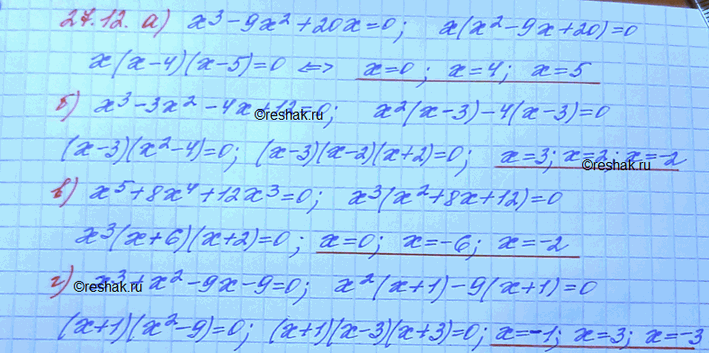 27.12. а) x³-9x²+20x=0; x(x²-9x+20)=0
x(x-4)(x-5)=0 <=> x=0; x=4; x=5
б) x³-3x²-4x+12=0; x²(x-3)-4(x-3)=0
©reshak.ru
(x-3)(x²-4)=0; (x-3)(x-2)(x+2)=0; x=3; x=2; x=-2
©reshak.ru
в) x⁵+8x⁴+12x³=0; x³(x²+8x+12)=0
x³(x+6)(x+2)=0; x=0; x=-6; x=-2
г) x³+x²-9x-9=0; x²(x+1)-9(x+1)=0
©reshak.ru
(x+1)(x²-9)=0; (x+1)(x-3)(x+3)=0; x=-1; x=3; x=-3